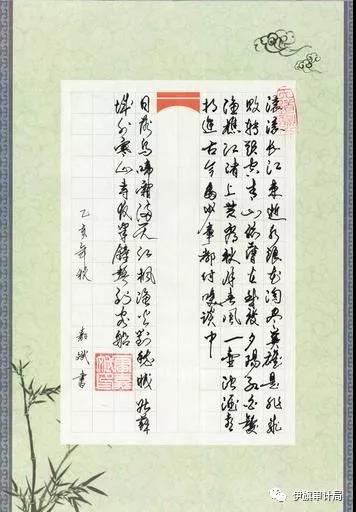 滚滚长江东逝水浪花淘尽英雄是非成
败转头空青山依旧在几度夕阳红白发
渔樵江渚上惯看秋月春风一壶浊酒喜
相逢古今多少事都付笑谈中
月落乌啼霜满天江枫渔火对愁眠姑苏
城外寒山寺夜半钟声到客船
亥年秋
书
伊旗审计局